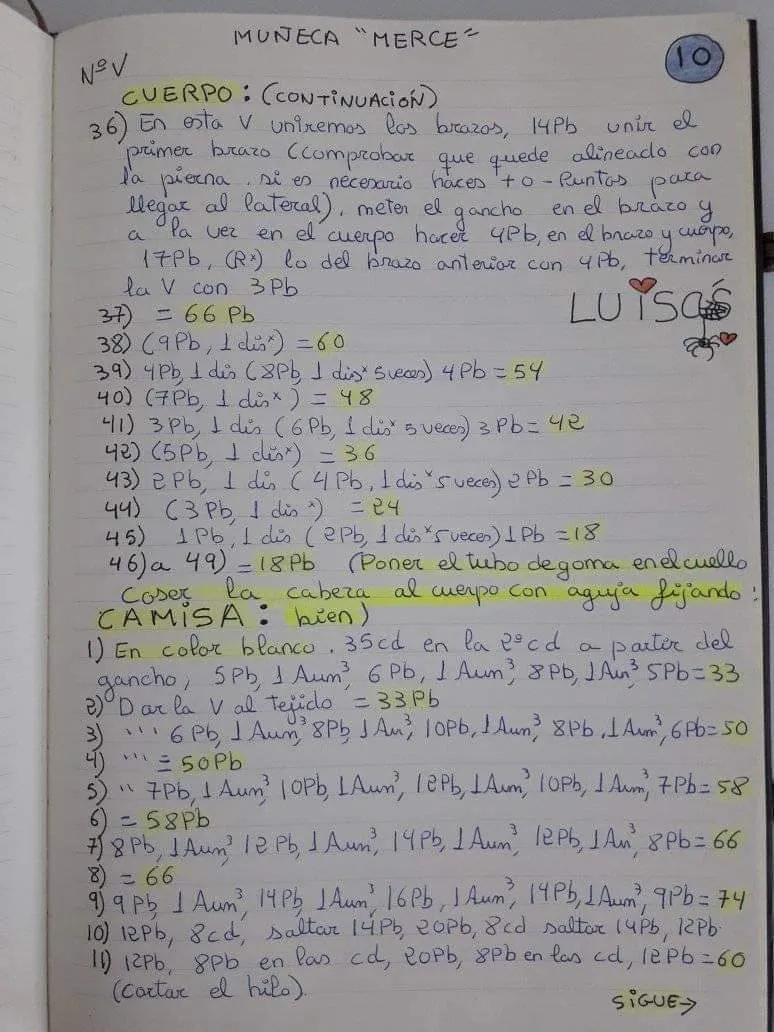 MUÑECA "MERCE"
10
NºV
CUERPO: (CONTINUACIÓN)
36) En esta V uniremos los brazos, 14Pb unir el
primer brazo (comprobar que quede alineado con
la pierna. si es necesario haces + o - Puntos para
llegar al lateral), meter el gancho en el brazo y
a la vez en el cuerpo hacer 4Pb, en el brazo y cuerpo,
17Pb, (Rˣ) lo del brazo anterior con 4Pb, terminar
la V con 3Pb
LUISAS
37) = 66 Pb
38) (9Pb, 1 disˣ) = 60
39) 4Pb, 1 dis (8Pb, 1 disˣ 5 veces) 4Pb = 54
40) (7Pb, 1 disˣ) = 48
41) 3Pb, 1 dis (6Pb, 1 disˣ 5 veces) 3Pb = 42
42) (5Pb, 1 disˣ) = 36
43) 2Pb, 1 dis (4Pb, 1 disˣ 5 veces) 2Pb = 30
44) (3Pb, 1 disˣ) = 24
45) 1Pb, 1 dis (2Pb, 1 disˣ 5 veces) 1Pb = 18
46) a 49) = 18Pb (Poner el tubo de goma en el cuello
Coser la cabeza al cuerpo con aguja fijando:
CAMISA: bien)
1) En color blanco. 35cd en la 2ª cd a partir del
gancho, 5Pb, 1 Aum³, 6Pb, 1 Aum³, 8Pb, 1 Aum³ 5Pb = 33
2) Dar la V al tejido = 33Pb
3) ''' 6Pb, 1 Aum³, 8Pb, 1 Am³, 10Pb, 1 Aum³, 8Pb, 1 Aum³, 6Pb = 50
4) ''' = 50Pb
5) '' 7Pb, 1 Aum³, 10Pb, 1 Aum³, 12Pb, 1 Aum³, 10Pb, 1 Aum³, 7Pb = 58
6) = 58Pb
7) 8Pb, 1 Aum³, 12Pb, 1 Aum³, 14Pb, 1 Aum³, 12Pb, 1 Am³, 8Pb = 66
8) = 66
9) 9Pb, 1 Aum³, 14Pb, 1 Aum³, 16Pb, 1 Aum³, 14Pb, 1 Aum³, 9Pb = 74
10) 12Pb, 8cd, saltar 14Pb, 20Pb, 8cd saltar 14Pb, 12Pb
11) 12Pb, 8Pb en las cd, 20Pb, 8Pb en las cd, 12Pb = 60
(Cortar el hilo).
SIGUE→